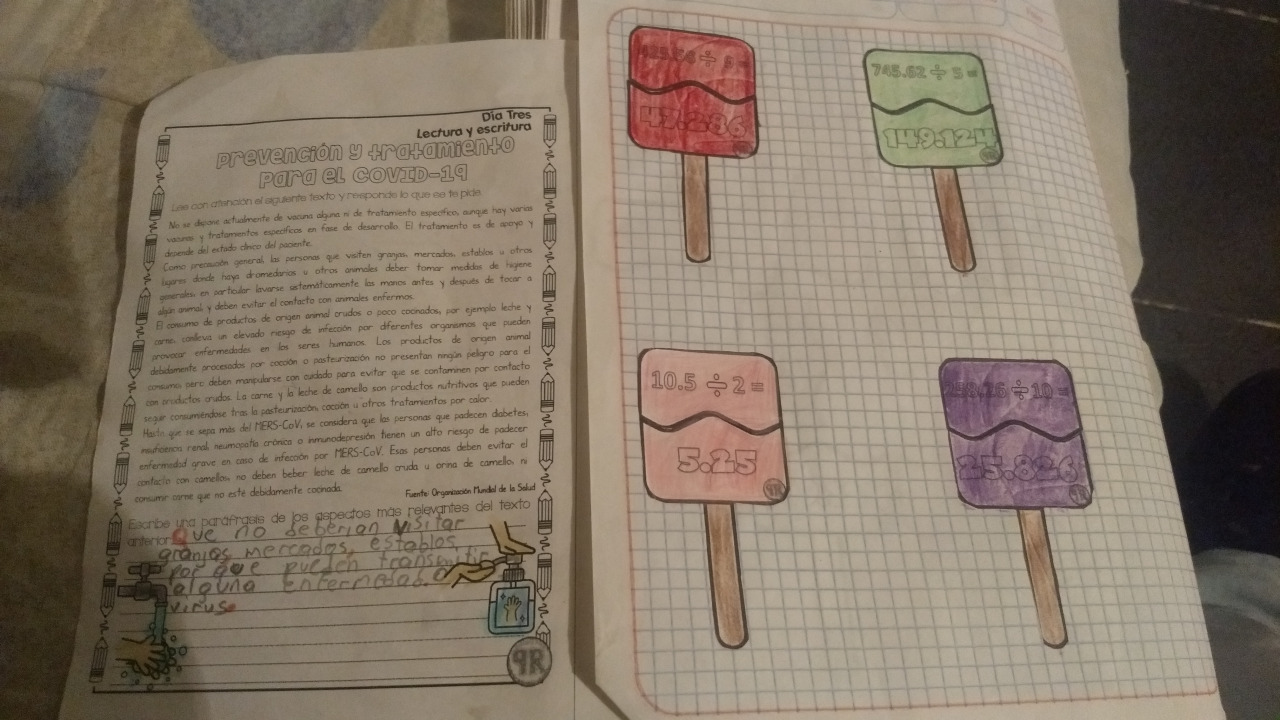 Día Tres
Lectura y escritura
Prevención y tratamiento
para el COVID-19
Lee con atención el siguiente texto y responde lo que se te pide.
No se dispone actualmente de vacuna alguna ni de tratamiento específico, aunque hay varias
vacunas y tratamientos específicos en fase de desarrollo. El tratamiento es de apoyo y
depende del estado clínico del paciente.
Como precaución general, las personas que visiten granjas, mercados, establos u otros
lugares donde haya dromedarios u otros animales deber tomar medidas de higiene
generales, en particular lavarse sistemáticamente las manos antes y después de tocar a
algún animal, y deben evitar el contacto con animales enfermos.
El consumo de productos de origen animal crudos o poco cocinados, por ejemplo leche y
carne, conlleva un elevado riesgo de infección por diferentes organismos que pueden
provocar enfermedades en los seres humanos. Los productos de origen animal
debidamente procesados por cocción o pasteurización no presentan ningún peligro para el
consumo, pero deben manipularse con cuidado para evitar que se contaminen por contacto
con productos crudos. La carne y la leche de camello son productos nutritivos que pueden
seguir consumiéndose tras la pasteurización, cocción u otros tratamientos por calor.
Hasta que se sepa más del MERS-CoV, se considera que las personas que padecen diabetes,
insuficiencia renal, neumopatía crónica o inmunodepresión tienen un alto riesgo de padecer
enfermedad grave en caso de infección por MERS-CoV. Esas personas deben evitar el
contacto con camellos, no deben beber leche de camello cruda u orina de camello, ni
consumir carne que no esté debidamente cocinada.
Fuente: Organización Mundial de la Salud
Escribe una paráfrasis de los aspectos más relevantes del texto
anterior:
Que no deberian visitar
granjas mercados, establos
por que pueden transmitir
alguna enfermedad. o
virus.
9R
÷ 5 =
47.286
9R
745.62 ÷ 5 =
149.124
9R
10.5 ÷ 2 =
5.25
9R
258.26 ÷ 10 =
25.826
9R